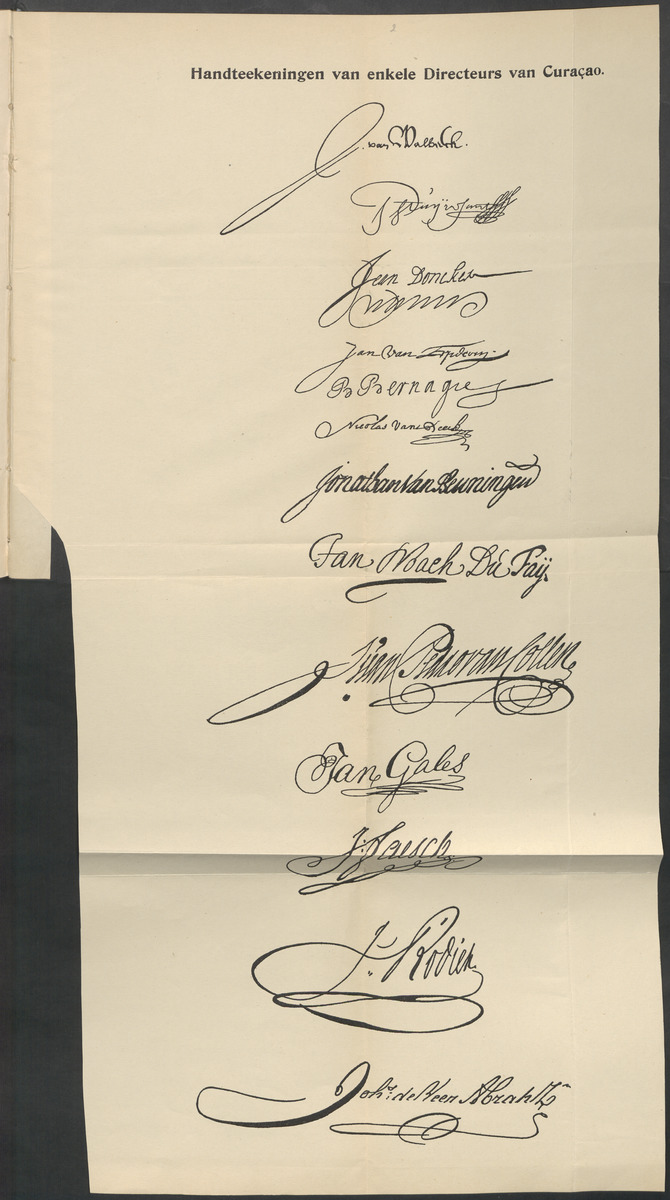 Handteekeningen van enkele Directeurs van Curaçao.
J. van Walbeeck.
P
Jean Doncker
Jan van Erpecum
B Bernagie
Nicolas van Beek
Jonathan Van Beuningen
Jan Noach Du Faij
Juan Pedro van Collen
Jan Gales
J: Faesch
J.. Rodier
Joh.s de Veer Abrah Zn